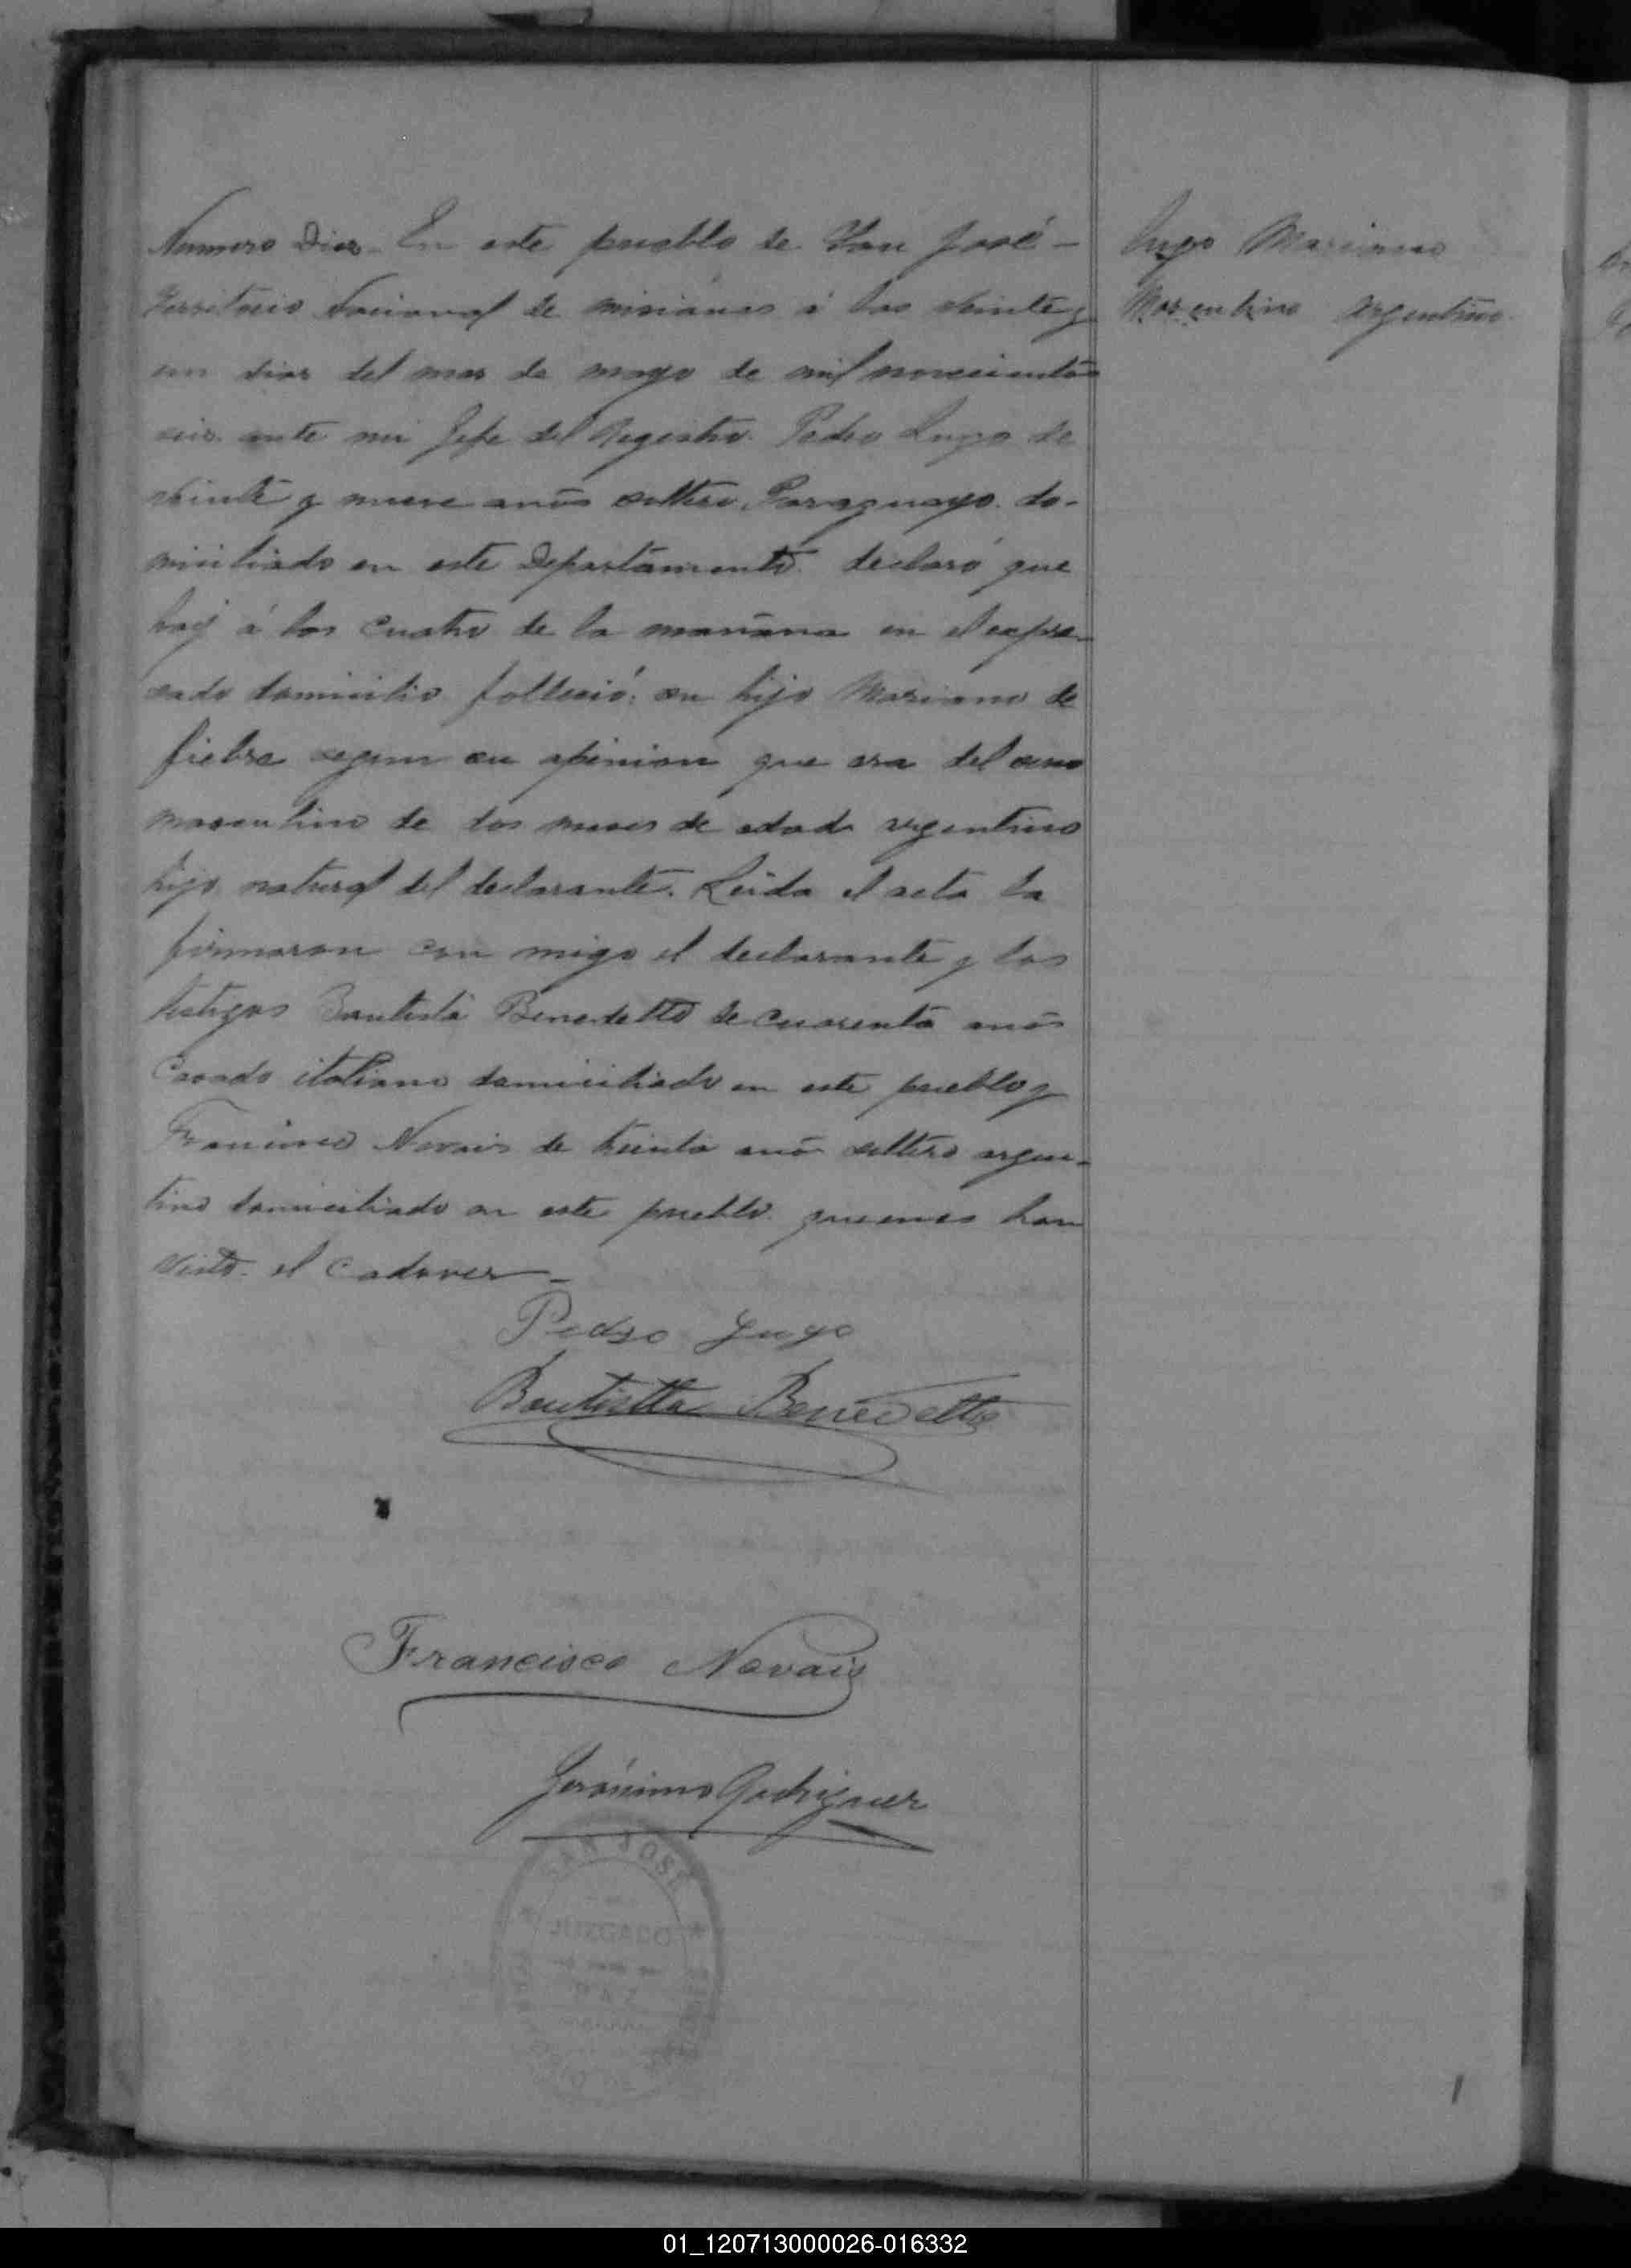 Numero Diez. En este pueblo de San José –
Territorio Nacional de misiones á los veinte y
un dias del mes de mayo de mil novecientos
seis ante mi Jefe del Registro. Pedro Lugo de
veinte y nueve anōs soltero, Paraguayo. do-
miciliado en este Departamento. declaró que
hoy á las cuatro de la manāna en el expre-
sado domicilio falleció: su hijo Mariano de
fiebre segun su opinion que era del sexo
masculino de dos meses de edad argentino
hijo natural del declarante. Leida el acta la
firmaron con migo el declarante y los
testigos Bautista Benedetto de cuarenta anōs
casado italiano domiciliado en este pueblo y
Francisco Novais de treinta anōs soltero argen-
tino domiciliado en este pueblo. quienes han
visto. el cadaver –
Pedro Lugo
Bautistta Benedetto
Francisco Novais
Jerónimo Rodriguez
SAN JOSE
JUZGADO
PAZ
Lugo Mariano
Masculino argentino.
01_120713000026-016332